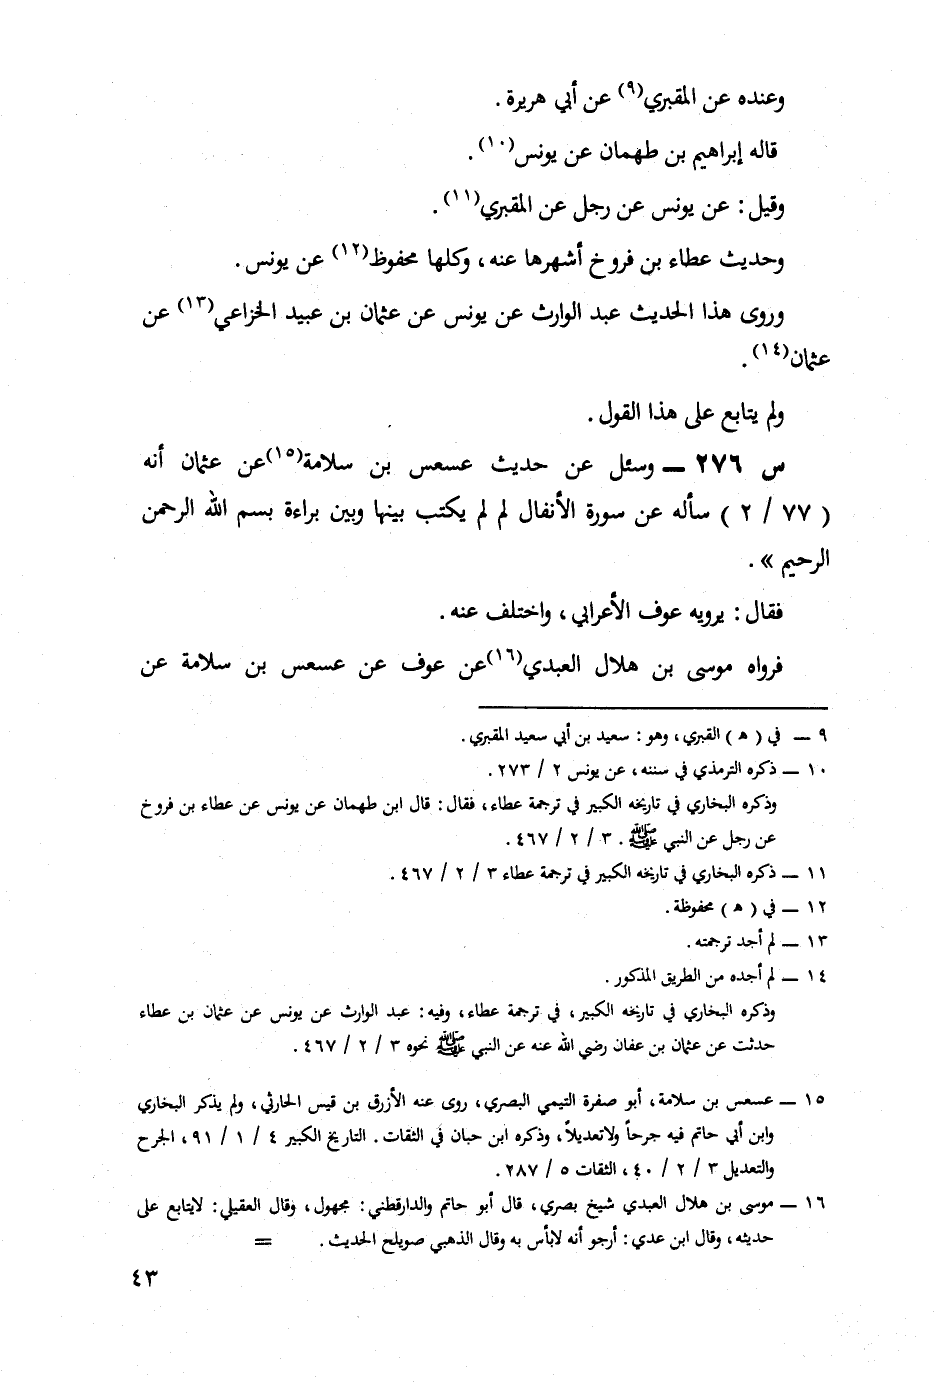 وعنده عن المقبري(٩) عن أبي هريرة .
قاله إبراهيم بن طهمان عن يونس(١٠) .
وقيل : عن يونس عن رجل عن المقبري(١١) .
وحديث عطاء بن فروخ أشهرها عنه ، وكلها محفوظ(١٢) عن يونس .
وروى هذا الحديث عبد الوارث عن يونس عن عثمان بن عبيد الخزاعي(١٣) عن
عثمان(١٤) .
ولم يتابع على هذا القول .
س ٢٧٦ ــ وسئل عن حديث عسعس بن سلامة(١٥)عن عثمان أنه
( ٧٧ / ٢ ) سأله عن سورة الأنفال لم لم يكتب بينها وبين براءة بسم الله الرحمن
الرحيم » .
فقال : يرويه عوف الأعرابي ، واختلف عنه .
فرواه موسى بن هلال العبدي(١٦)عن عوف عن عسعس بن سلامة عن
٩ ــ في ( هـ ) القبري ، وهو : سعيد بن أبي سعيد المقبري .
١٠ ــ ذكره الترمذي في سننه ، عن يونس ٢ / ٢٧٣ .
وذكره البخاري في تاريخه الكبير في ترجمة عطاء ، فقال : قال ابن طهمان عن يونس عن عطاء بن فروخ
عن رجل عن النبي ﷺ . ٣ / ٢ / ٤٦٧ .
١١ ــ ذكره البخاري في تاريخه الكبير في ترجمة عطاء ٣ / ٢ / ٤٦٧ .
١٢ ــ في ( هـ ) محفوظة .
١٣ ــ لم أجد ترجمته .
١٤ ــ لم أجده من الطريق المذكور .
وذكره البخاري في تاريخه الكبير ، في ترجمة عطاء ، وفيه : عبد الوارث عن يونس عن عثمان بن عطاء
حدثت عن عثمان بن عفان رضي الله عنه عن النبي ﷺ نحوه ٣ / ٢ / ٤٦٧ .
١٥ ــ عسعس بن سلامة ، أبو صفرة التيمي البصري ، روى عنه الأزرق بن قيس الحارثي ، ولم يذكر البخاري
وابن أبي حاتم فيه جرحاً ولاتعديلاً ، وذكره ابن حبان في الثقات . التاريخ الكبير ٤ / ١ / ٩١ ، الجرح
والتعديل ٣ / ٢ / ٤٠ ، الثقات ٥ / ٢٨٧ .
١٦ ــ موسى بن هلال العبدي شيخ بصري ، قال أبو حاتم والدارقطني : مجهول ، وقال العقيلي : لايتابع على
حديثه ، وقال ابن عدي : أرجو أنه لابأس به وقال الذهبي صويلح الحديث . =
٤٣